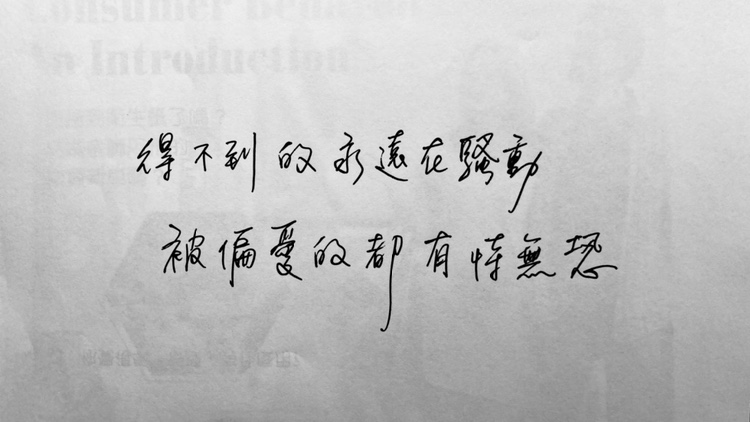 Consumer
An Introduction
得不到的永遠在騷動
被偏愛的都有恃無恐